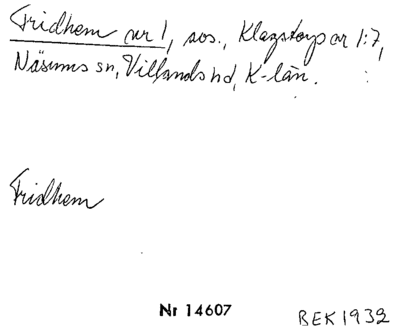 Fridhem nr 1, sos., Klagstorp nr 1:7,
Näsums sn, Villands hd, K-län.
Fridhem
Nr 14607
BEK 1932